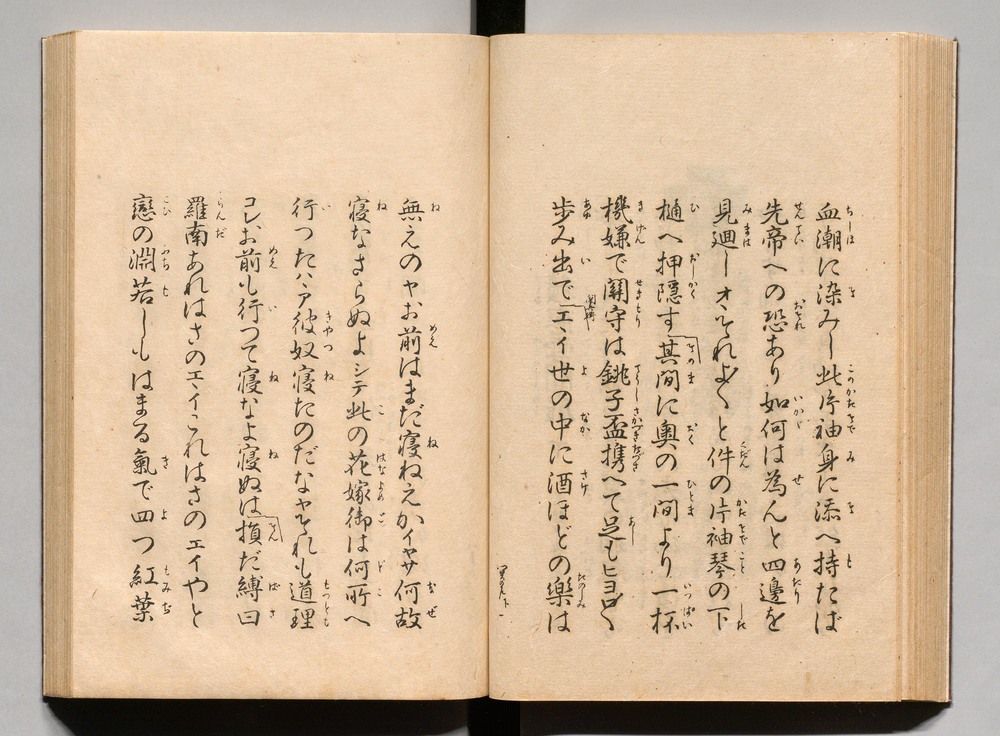 血潮に染みし此片袖身に添へ持たば
先帝への恐あり如何は為んと四邊を
見廻しオヽそれよ〱と件の片袖琴の下
樋へ押隠す其間に奧の一間より一杯
機嫌で關守は銚子盃携へて足もヒヨロ〱
歩み出でエヽイ世の中に酒ほどの樂は
無えのヤお前はまだ寝ねえかイヤサ何故
寝なさらぬよシテ此の花嫁御は何所へ
行つたハヽア彼奴寝たのだなヤそれも道理
コレお前も行つて寝なよ寝ぬは損だ縛曰
羅南あれはさのエヽイこれはさのエイやと
戀の淵若しもはまる氣で四つ紅葉